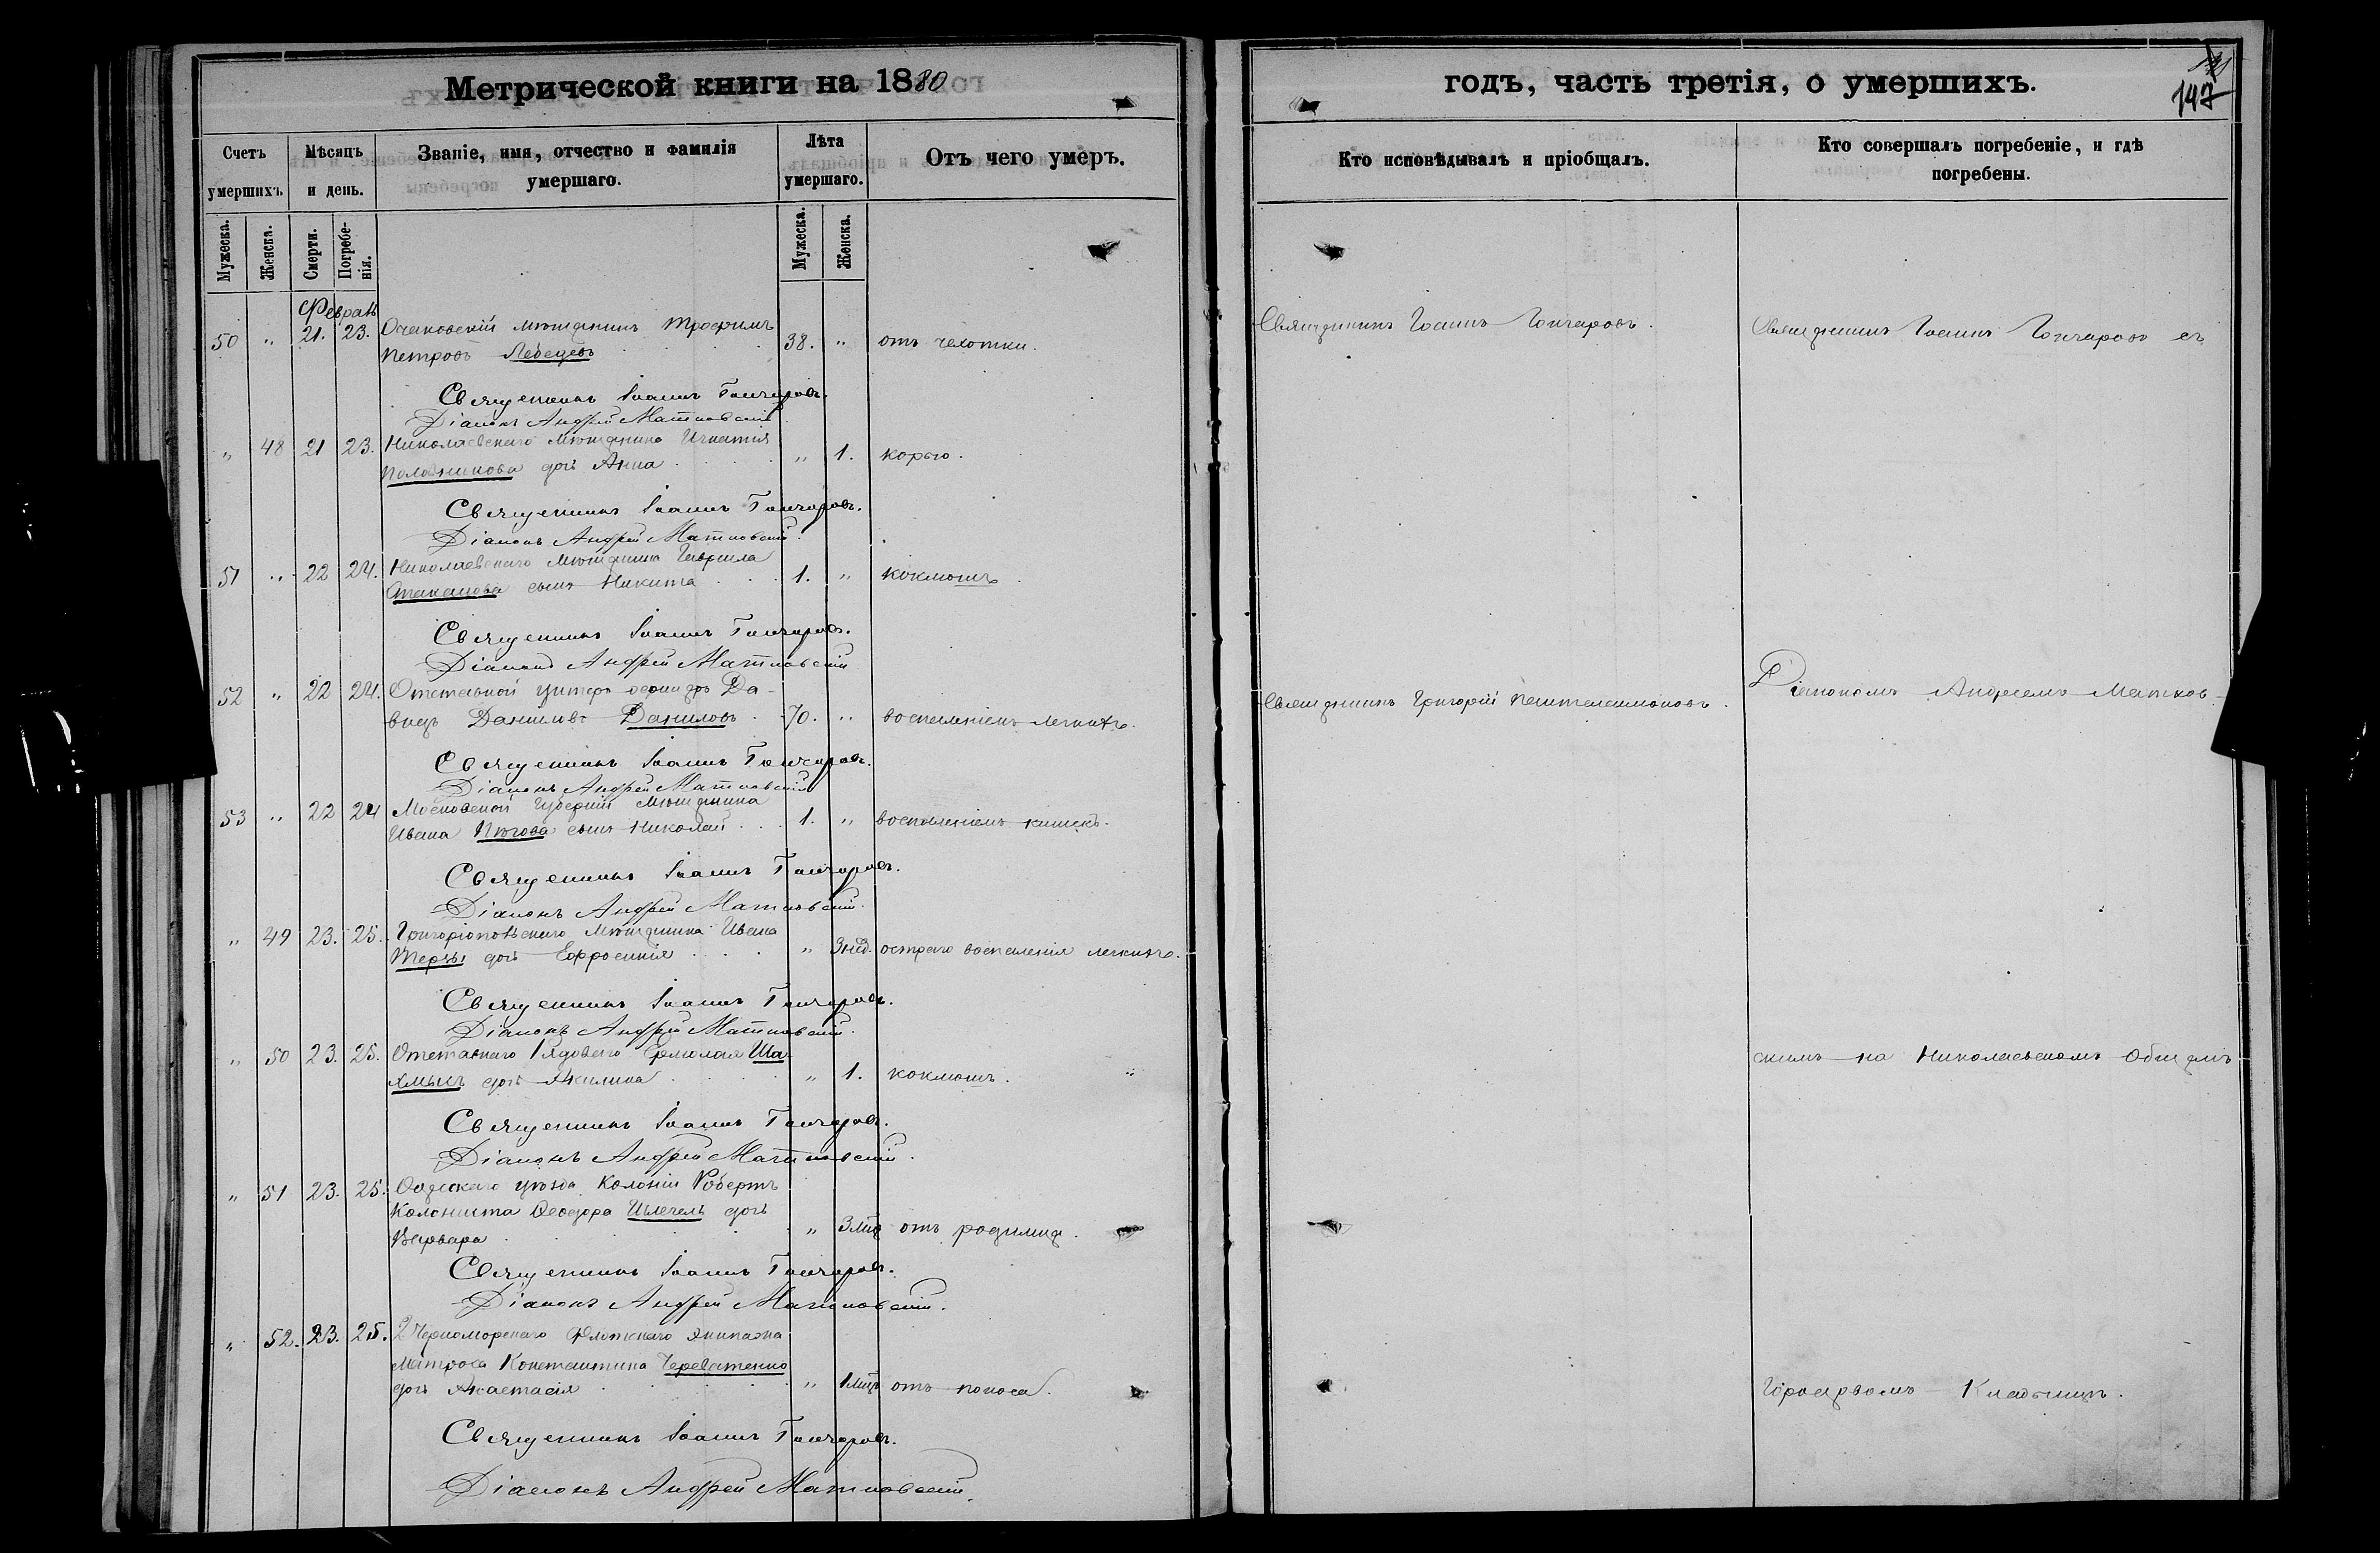 Метрической книги на 1880
Счетъ умершихъ
Мѣсяцъ и день.
Званіе, имя, отчество и фамилія умершаго.
Лѣта умершаго.
Отъ чего умеръ.
Мужеска. Женска. Смерти. Погребенія. Мужеска. Женска.
Февраль
50 " 21. 23. Очаковскій мѣщанинъ Трофимъ
Петровъ Лебедевъ 38. " отъ чахотки.
Священникъ Іоаннъ Гончаровъ.
Діаконъ Андрей Матковскій
" 48 21 23. Николаевскаго мѣщанина Игнатія
дочь Анна " 1. корью.
Священникъ Іоаннъ Гончаровъ.
Діаконъ Андрей Матковскій.
51 " 22 24. Николаевскаго мѣщанина Гавріила
Стаканова сынъ Никита 1. " коклюшъ.
Священникъ Іоаннъ Гончаровъ.
Діаконъ Андрей Матковскій
52 " 22 24. Отставной унтеръ офицеръ Да-
видъ Даниловъ Даниловъ 70. " воспаленіемъ легкихъ.
Священникъ Іоаннъ Гончаровъ.
Діаконъ Андрей Матковскій
53 " 22 24 Московской Губерніи мѣщанина
Ивана сынъ Николай 1. " воспаленіемъ кишекъ.
Священникъ Іоаннъ Гончаровъ.
Діаконъ Андрей Матковскій.
" 49 23. 25. Григоріопольскаго мѣщанина Ивана
дочь Евфросинія " 3 нед. остраго воспаленія легкихъ.
Священникъ Іоаннъ Гончаровъ.
Діаконъ Андрей Матковскій.
" 50 23. 25. Отставнаго Рядоваго Ермолая
дочь Акилина " 1. коклюшъ.
Священникъ Іоаннъ Гончаровъ.
Діаконъ Андрей Матковскій.
" 51 23. 25. Одесскаго уѣзда Колоніи
Колониста Ѳеодора дочь
Варвара " отъ родимца.
Священникъ Іоаннъ Гончаровъ.
Діаконъ Андрей Матковскій.
" 52. 23. 25. 2 Черноморскаго Флотскаго экипажа
матроса Константина Череватенко
дочь Анастасія " отъ поноса.
Священникъ Іоаннъ Гончаровъ.
Діаконъ Андрей Матковскій.
годъ, часть третія, о умершихъ.
147
Кто исповѣдывалъ и пріобщалъ.
Кто совершалъ погребеніе, и гдѣ погребены.
Священникъ Іоаннъ Гончаровъ.
Священникъ Григорій Пантелеимоновъ.
Священникъ Іоаннъ Гончаровъ съ
Діакономъ Андреемъ Матков-
скимъ на Николаевскомъ Общемъ
Городскомъ Кладбищѣ.